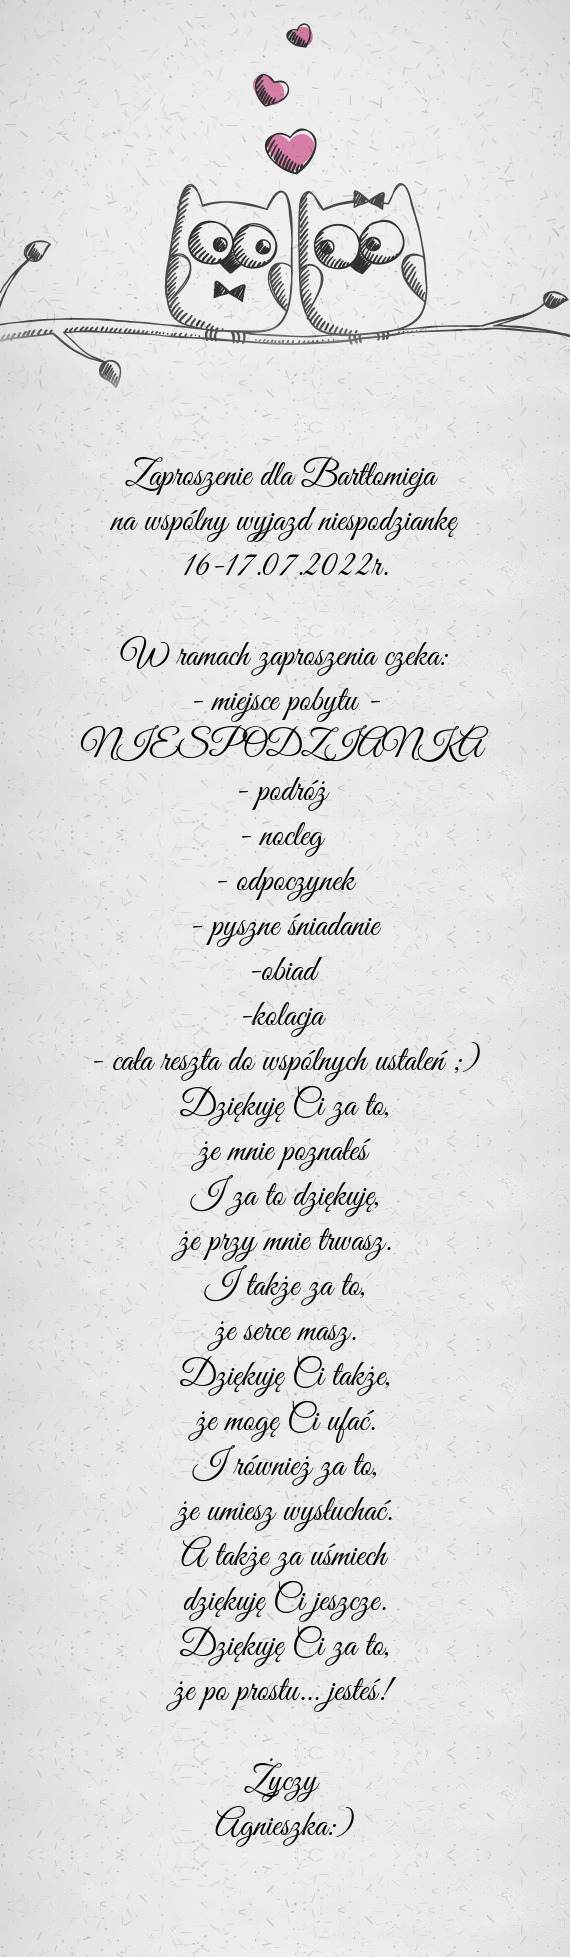 Zaproszenie dla Bartłomieja
na wspólny wyjazd niespodziankę
16-17.07.2022r.
W ramach zaproszenia czeka:
- miejsce pobytu -
NIESPODZIANKA
- podróż
- nocleg
- odpoczynek
- pyszne śniadanie
-obiad
-kolacja
- cała reszta do wspólnych ustaleń ;)
Dziękuję Ci za to,
że mnie poznałeś
I za to dziękuję,
że przy mnie trwasz.
I także za to,
że serce masz.
Dziękuję Ci także,
że mogę Ci ufać.
I również za to,
że umiesz wysłuchać.
A także za uśmiech
dziękuję Ci jeszcze.
Dziękuję Ci za to,
że po prostu... jesteś!
Życzy
Agnieszka:)